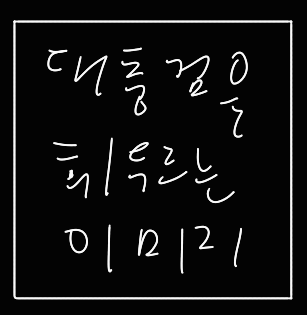 대통검을
휘두르는
이미리